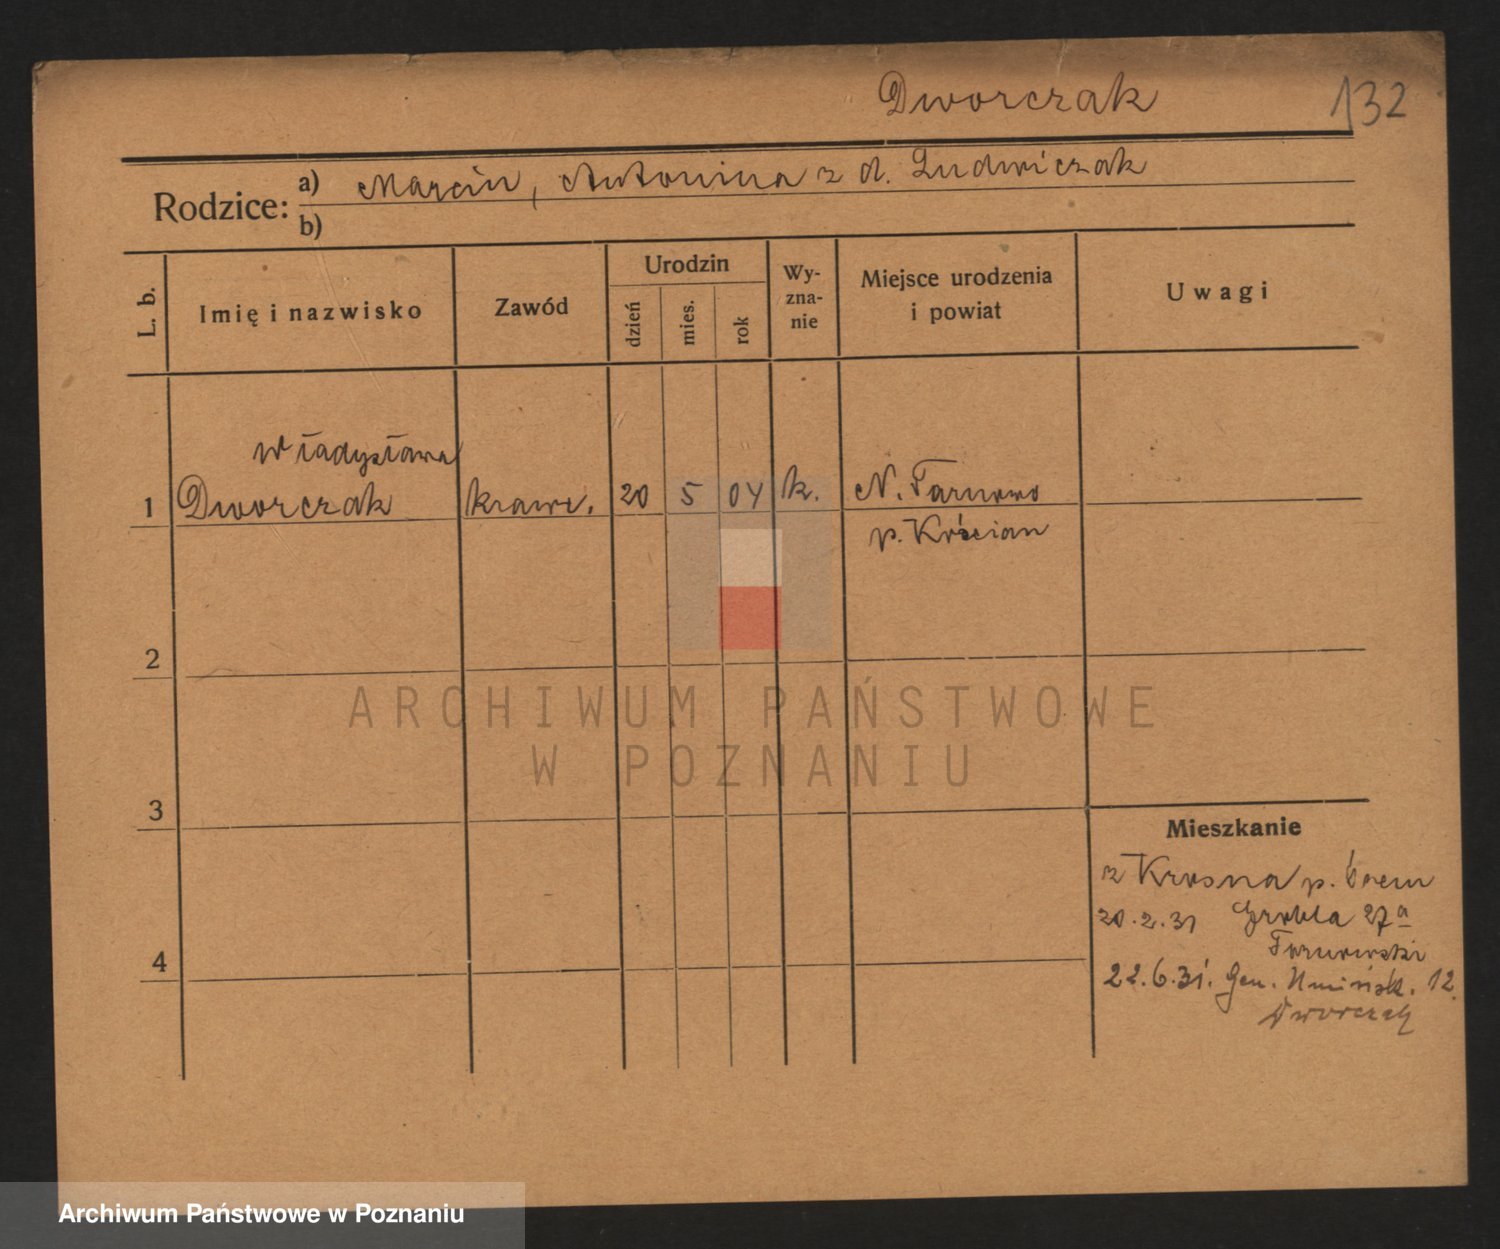 Dworczak 132
Rodzice: a) Marcin, Antonina z d. Ludwiczak
b)
L. b.
Imię i nazwisko
Zawód
Urodzin
dzień
mies.
rok
Wy-
zna-
nie
Miejsce urodzenia
i powiat
Uwagi
Władysława
1 Dworczak krawc. 20 5 04 k. N. Tarnowo
p. Kościan
2
3
4
Mieszkanie
z Krosna p. Śrem
20.2.31 Grobla 27a
Tarnowski
22.6.31. Gen. Umińsk. 12.
Dworczak
ARCHIWUM PAŃSTWOWE
W POZNANIU
Archiwum Państwowe w Poznaniu